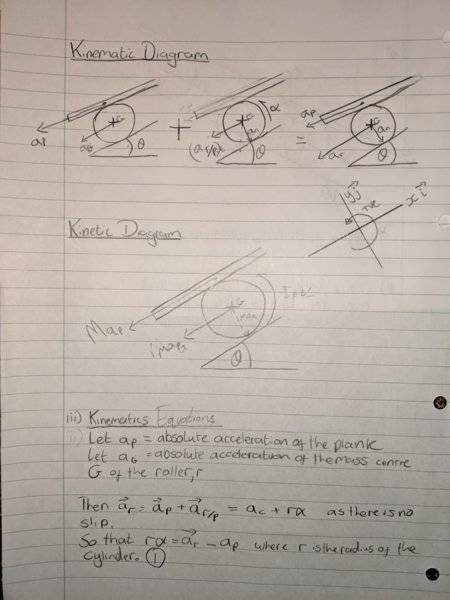 Kinematic Diagram
α
aP G aP G
aP aG θ + (ar/p)t θ = ar θ
yj→ +ve x i→
Kinetic Diagram
G
MaP
θ
iii) Kinematics Equations
i) Let aP = absolute acceleration of the plank
Let aG = absolute acceleration of the mass centre
G of the roller, r
Then a→r = a→p + a→r/p = ac + rα as there is no
slip.
So that rα = a→r - ap where r is the radius of the
cylinder. ①